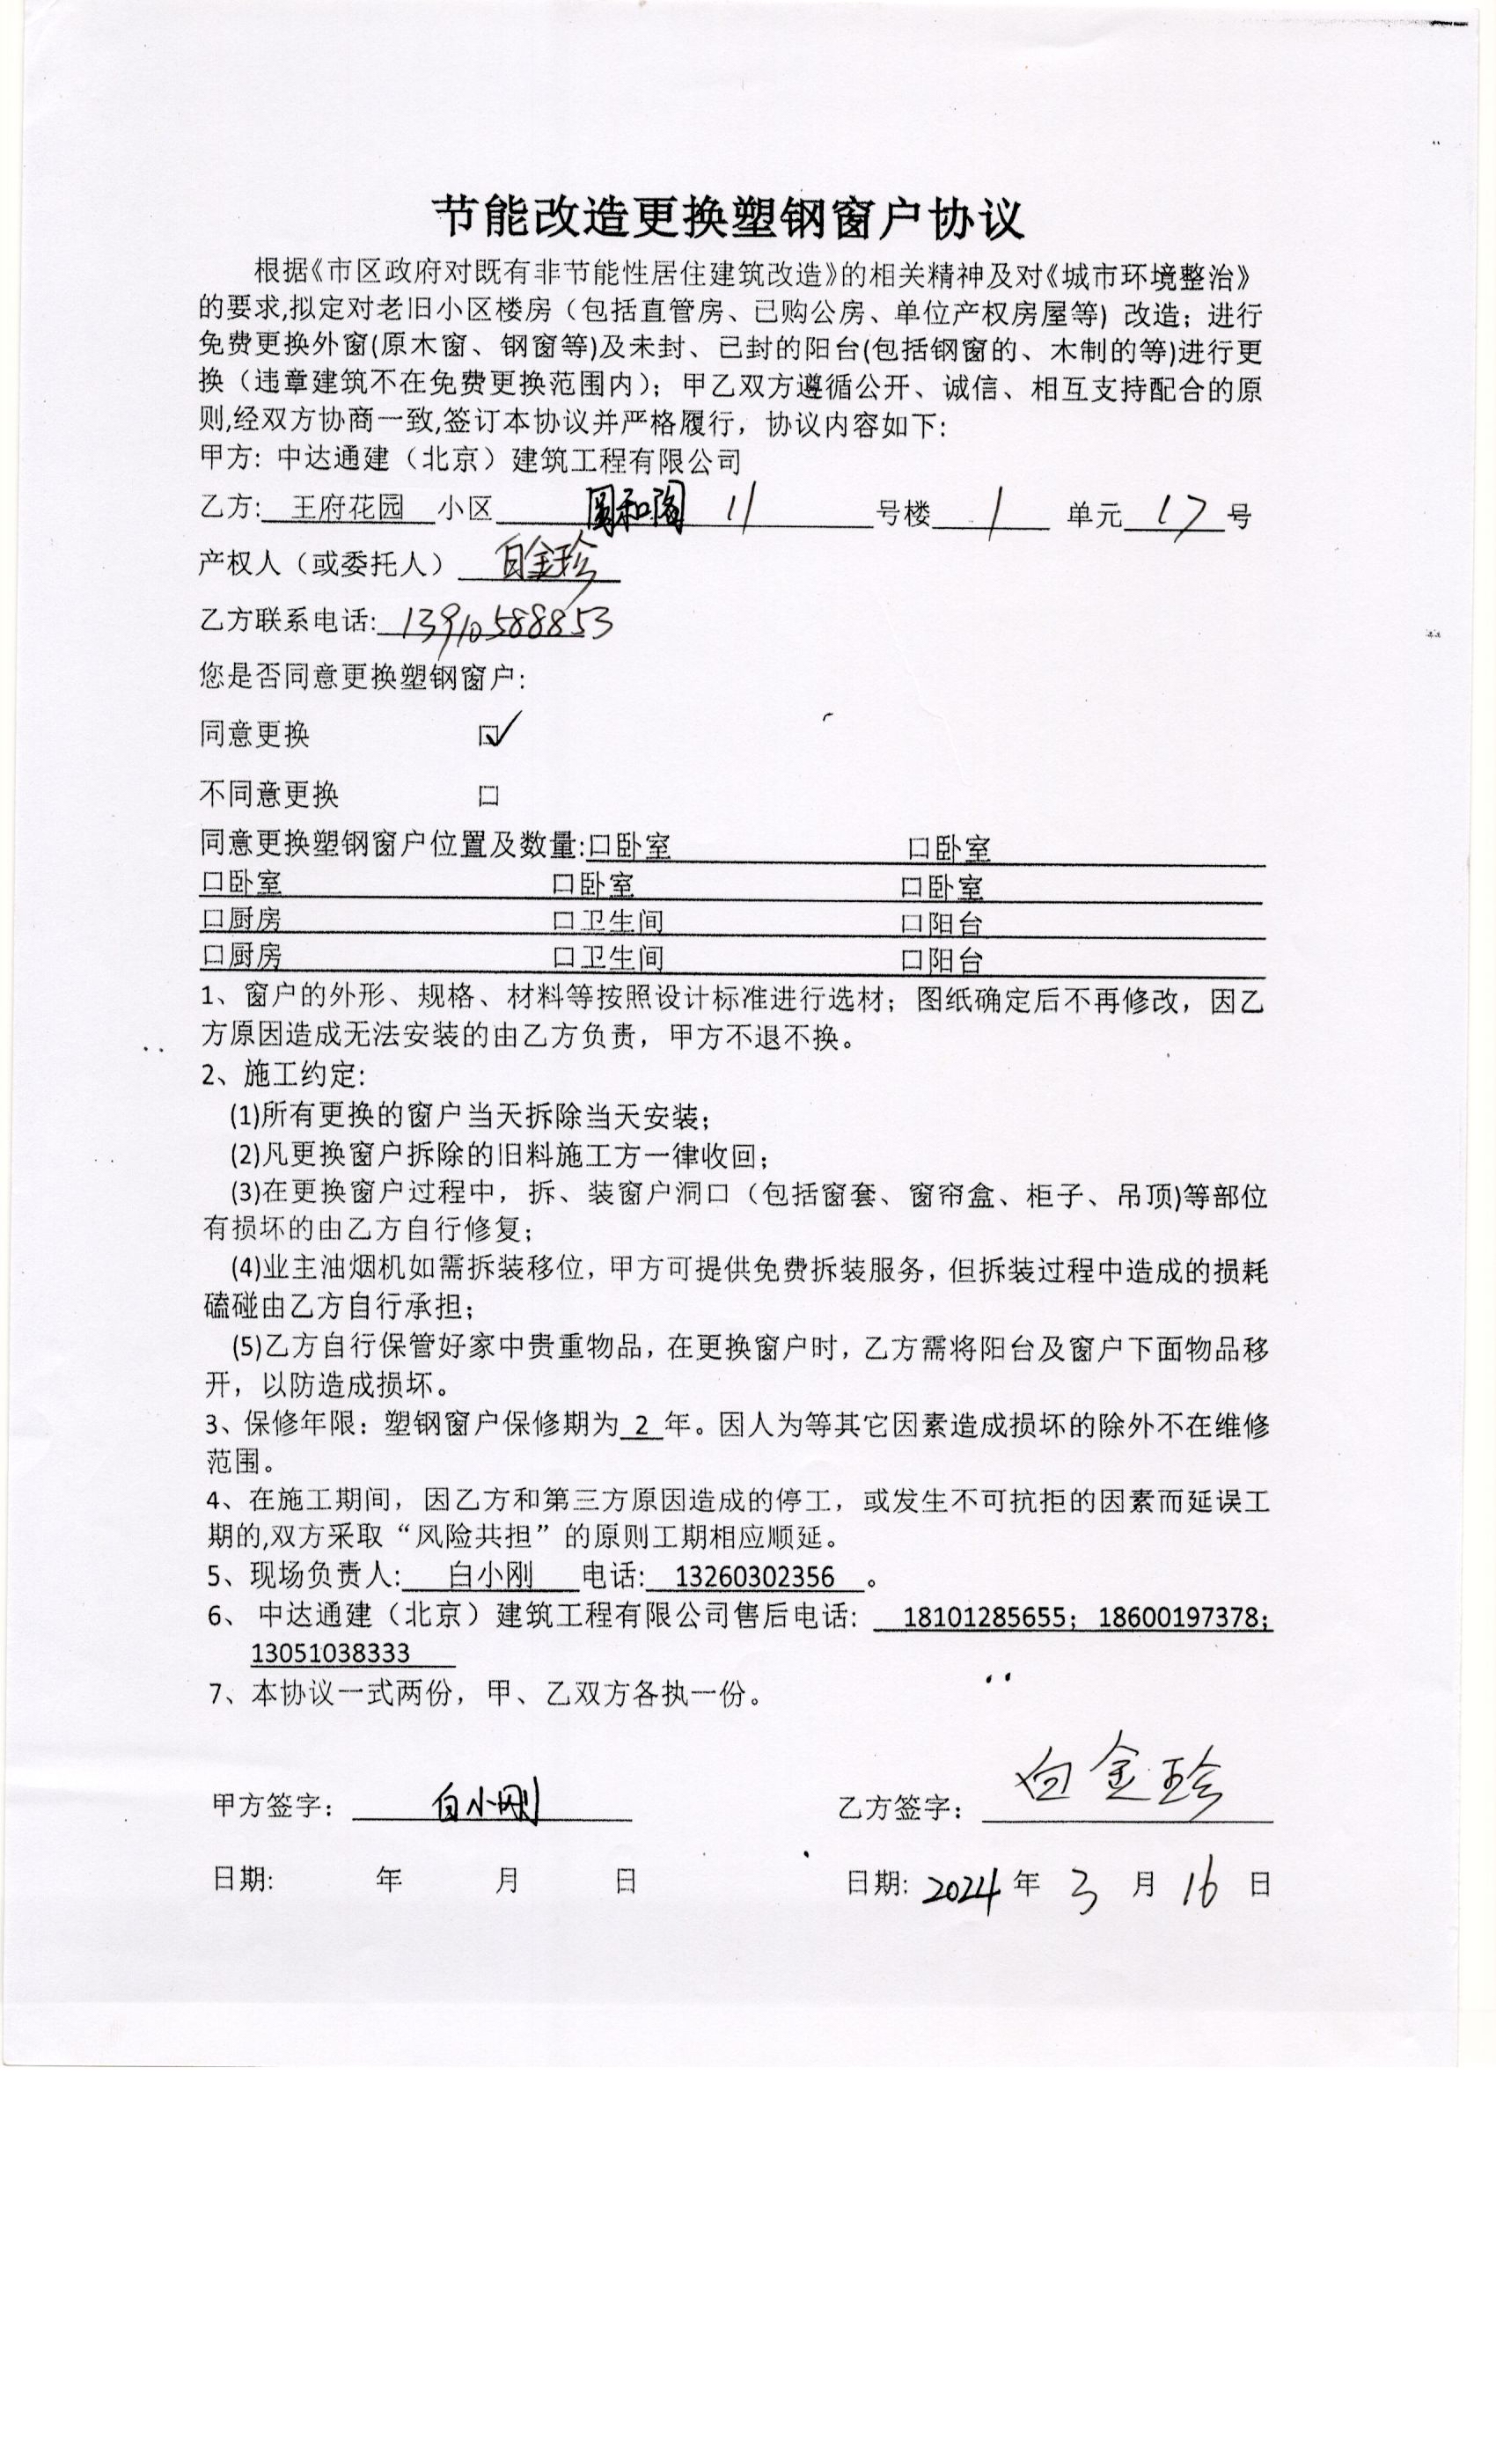 节能改造更换塑钢窗户协议
根据《市区政府对既有非节能性居住建筑改造》的相关精神及对《城市环境整治》
的要求,拟定对老旧小区楼房（包括直管房、已购公房、单位产权房屋等) 改造；进行
免费更换外窗(原木窗、钢窗等)及未封、已封的阳台(包括钢窗的、木制的等)进行更
换（违章建筑不在免费更换范围内）；甲乙双方遵循公开、诚信、相互支持配合的原
则,经双方协商一致,签订本协议并严格履行，协议内容如下：
甲方：中达通建（北京）建筑工程有限公司
乙方: 王府花园 小区 和阁 11 号楼 1 单元 17 号
产权人（或委托人） 白金珍
乙方联系电话: 13910588853
您是否同意更换塑钢窗户：
同意更换 ☑
不同意更换 □
同意更换塑钢窗户位置及数量:口卧室 口卧室
口卧室 口卧室 口卧室
口厨房 口卫生间 口阳台
口厨房 口卫生间 口阳台
1、窗户的外形、规格、材料等按照设计标准进行选材；图纸确定后不再修改，因乙
方原因造成无法安装的由乙方负责，甲方不退不换。
2、施工约定:
(1)所有更换的窗户当天拆除当天安装；
(2)凡更换窗户拆除的旧料施工方一律收回；
(3)在更换窗户过程中，拆、装窗户洞口（包括窗套、窗帘盒、柜子、吊顶)等部位
有损坏的由乙方自行修复；
(4)业主油烟机如需拆装移位，甲方可提供免费拆装服务，但拆装过程中造成的损耗
磕碰由乙方自行承担；
(5)乙方自行保管好家中贵重物品，在更换窗户时，乙方需将阳台及窗户下面物品移
开，以防造成损坏。
3、保修年限：塑钢窗户保修期为 2 年。因人为等其它因素造成损坏的除外不在维修
范围。
4、在施工期间，因乙方和第三方原因造成的停工，或发生不可抗拒的因素而延误工
期的,双方采取“风险共担”的原则工期相应顺延。
5、现场负责人: 白小刚 电话: 13260302356 。
6、 中达通建（北京）建筑工程有限公司售后电话： 18101285655；18600197378；
13051038333
7、本协议一式两份，甲、乙双方各执一份。
甲方签字： 白小刚 乙方签字： 白金珍
日期: 年 月 日 日期: 2024 年 3 月 16 日